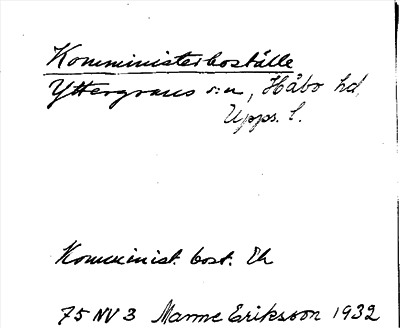 Komministerboställe
Yttergrans s:n, Håbo hd,
Upps. l.
Komminist. bost. Eh
75 NV 3 Manne Eriksson 1932